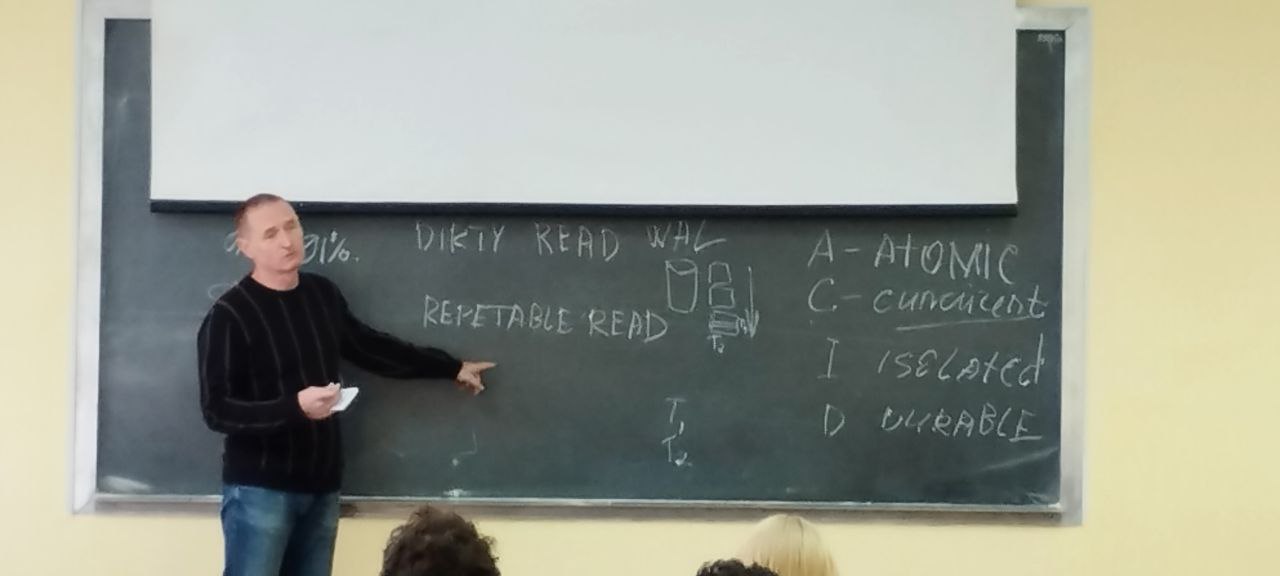 91%.
DIRTY READ WAL
REPETABLE READ
T₂
T₁
T₂
A - ATOMIC
C - cuncurent
I ISELATED
D DURABLE